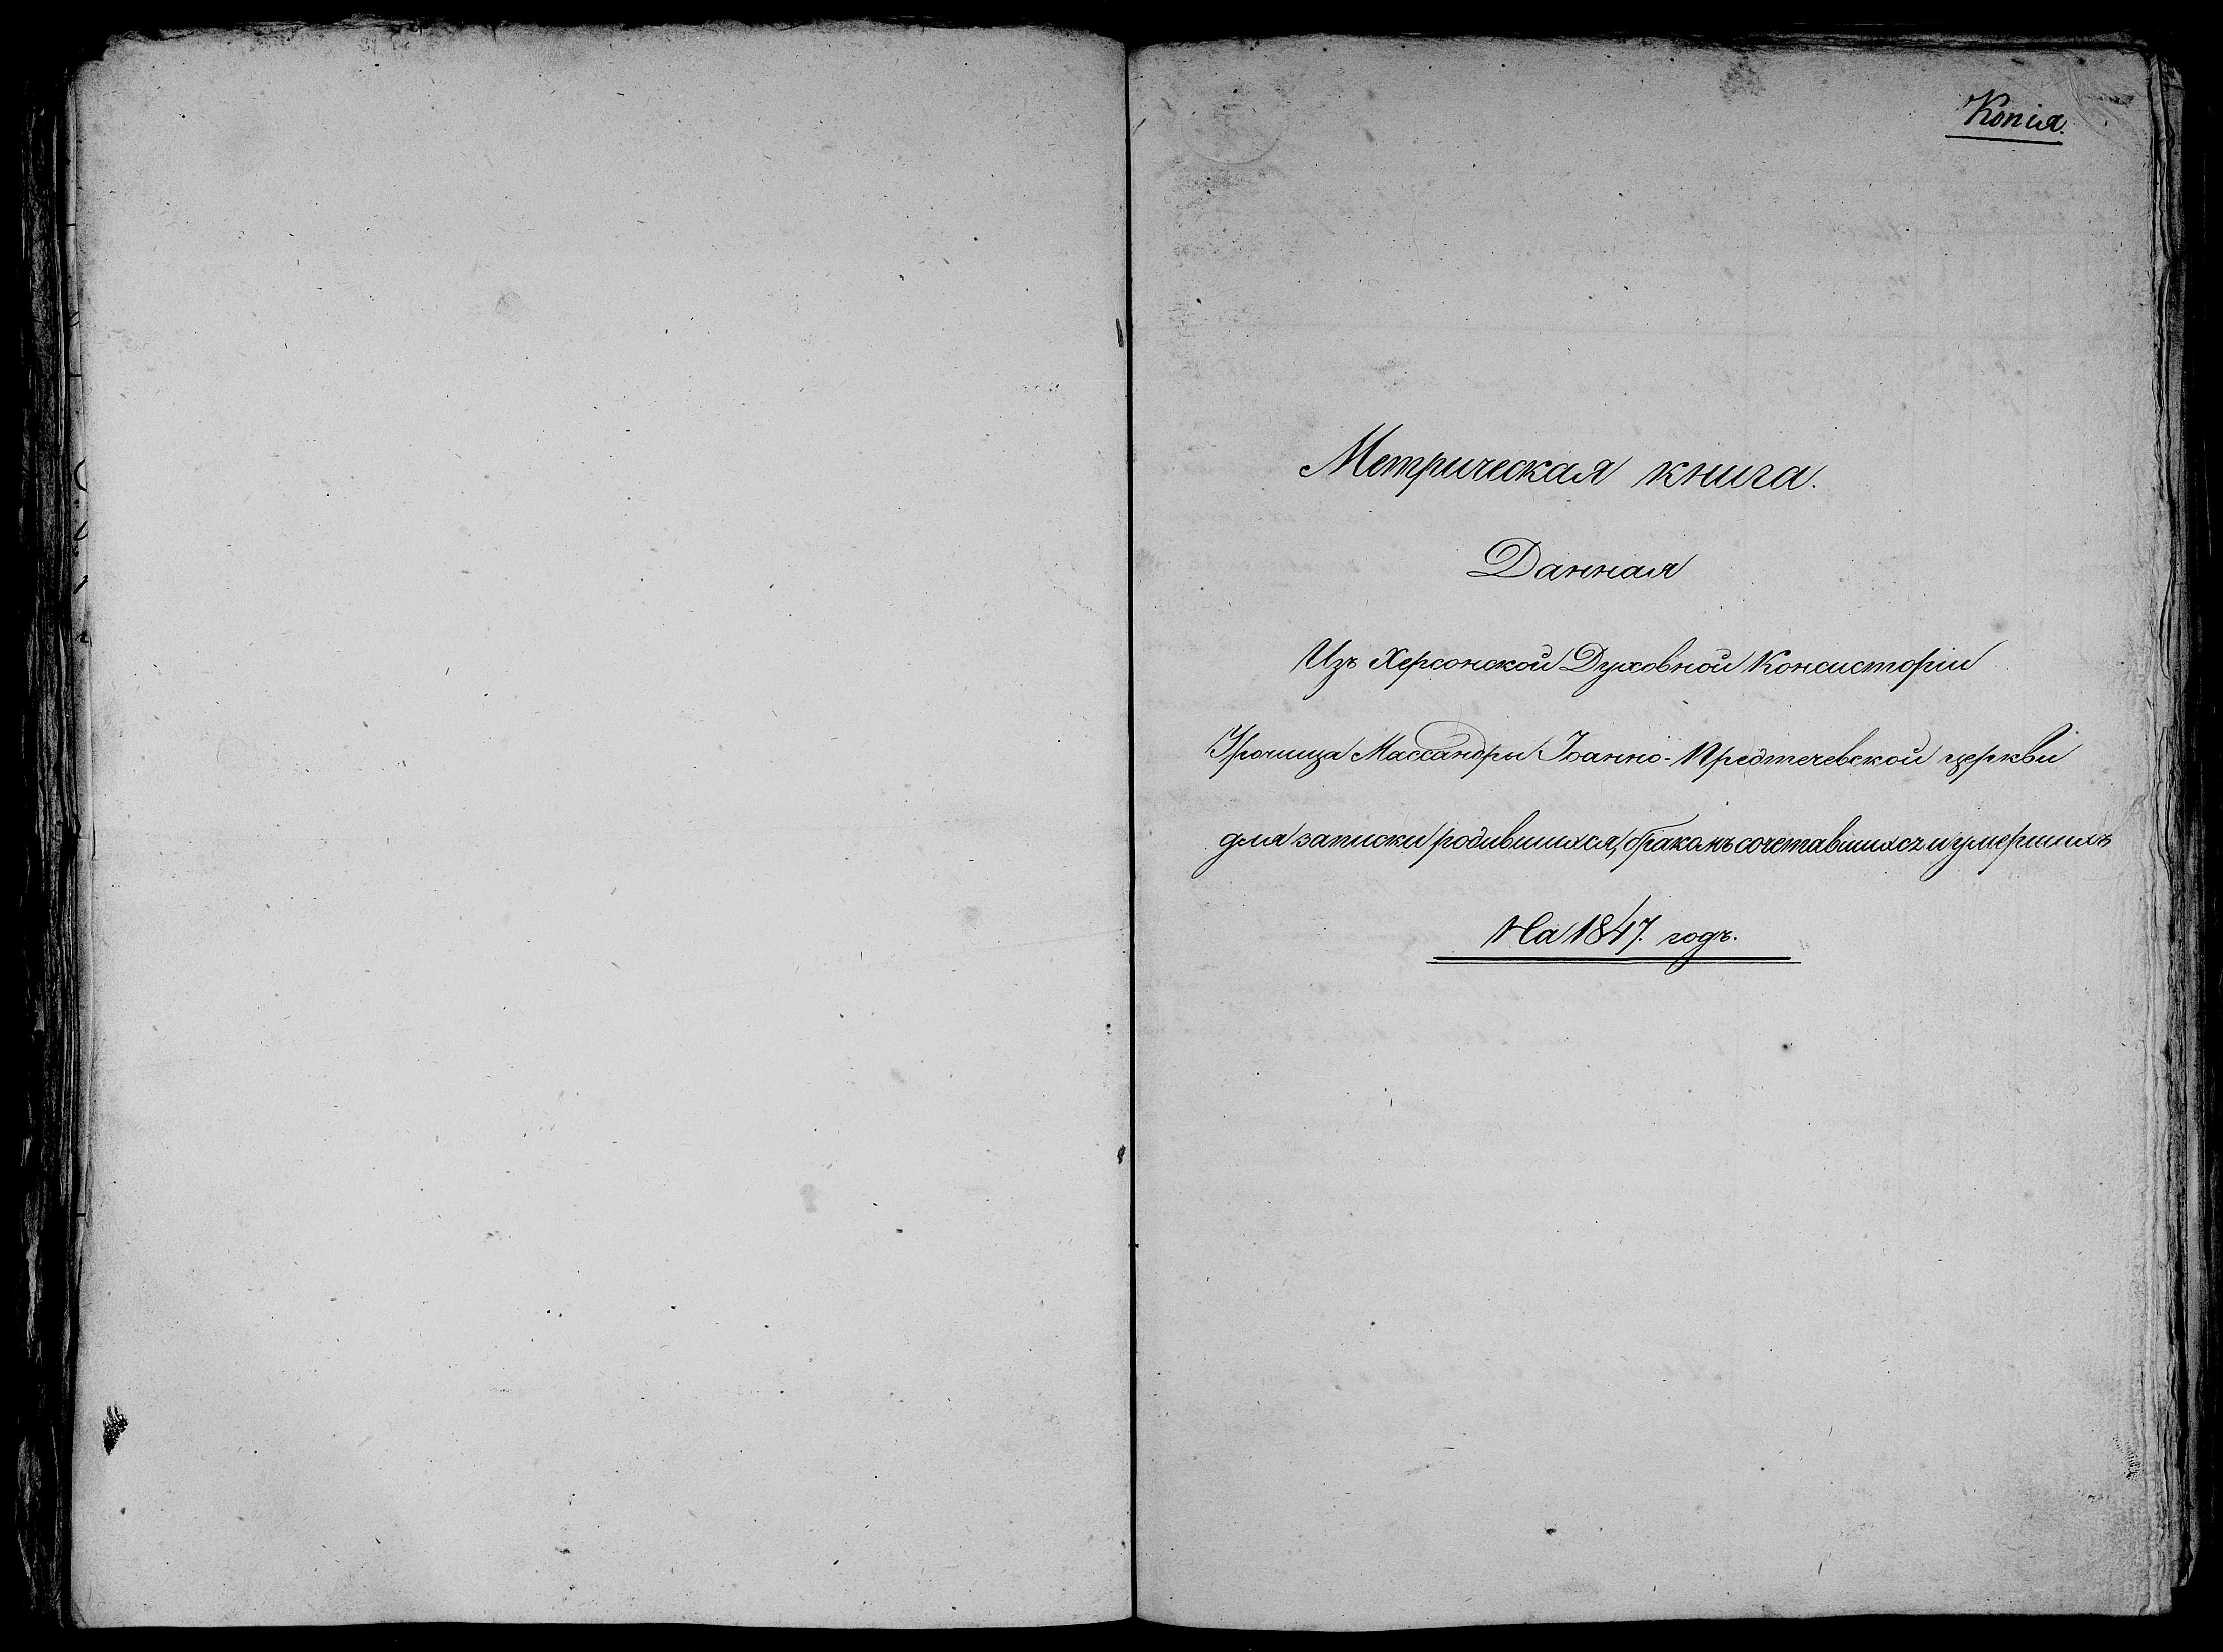 Копія.
Метрическая книга.
Данная
Изъ Херсонской Духовной Консисторіи
Урочища Массандры Іоанно-Предтечевской церкви
для записки родившихся, бракомъ сочетавшихся и умершихъ
На 1847. годъ.